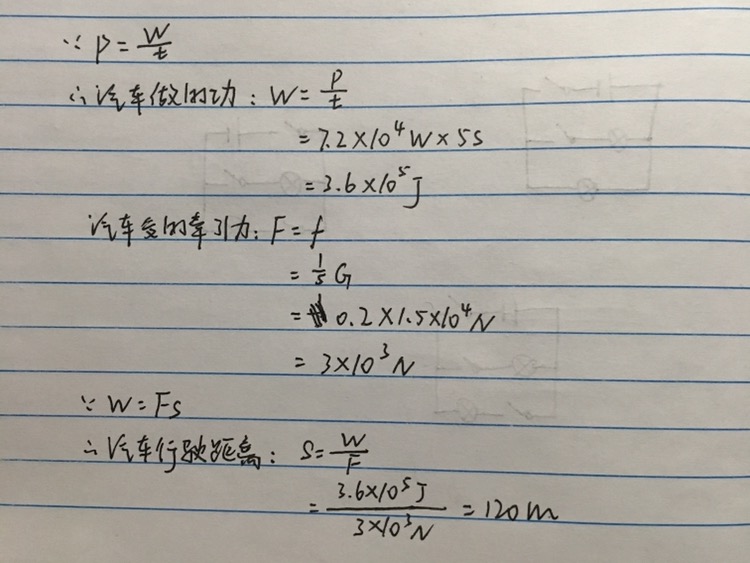 ∵ P = W/t
∴ 汽车做的功: W = P/t
= 7.2×10⁴W×5s
= 3.6×10⁵J
汽车受的牵引力: F = f
= 1/5 G
= 0.2×1.5×10⁴N
= 3×10³N
∵ W = Fs
∴ 汽车行驶距离: S = W/F
= 3.6×10⁵J / 3×10³N = 120m